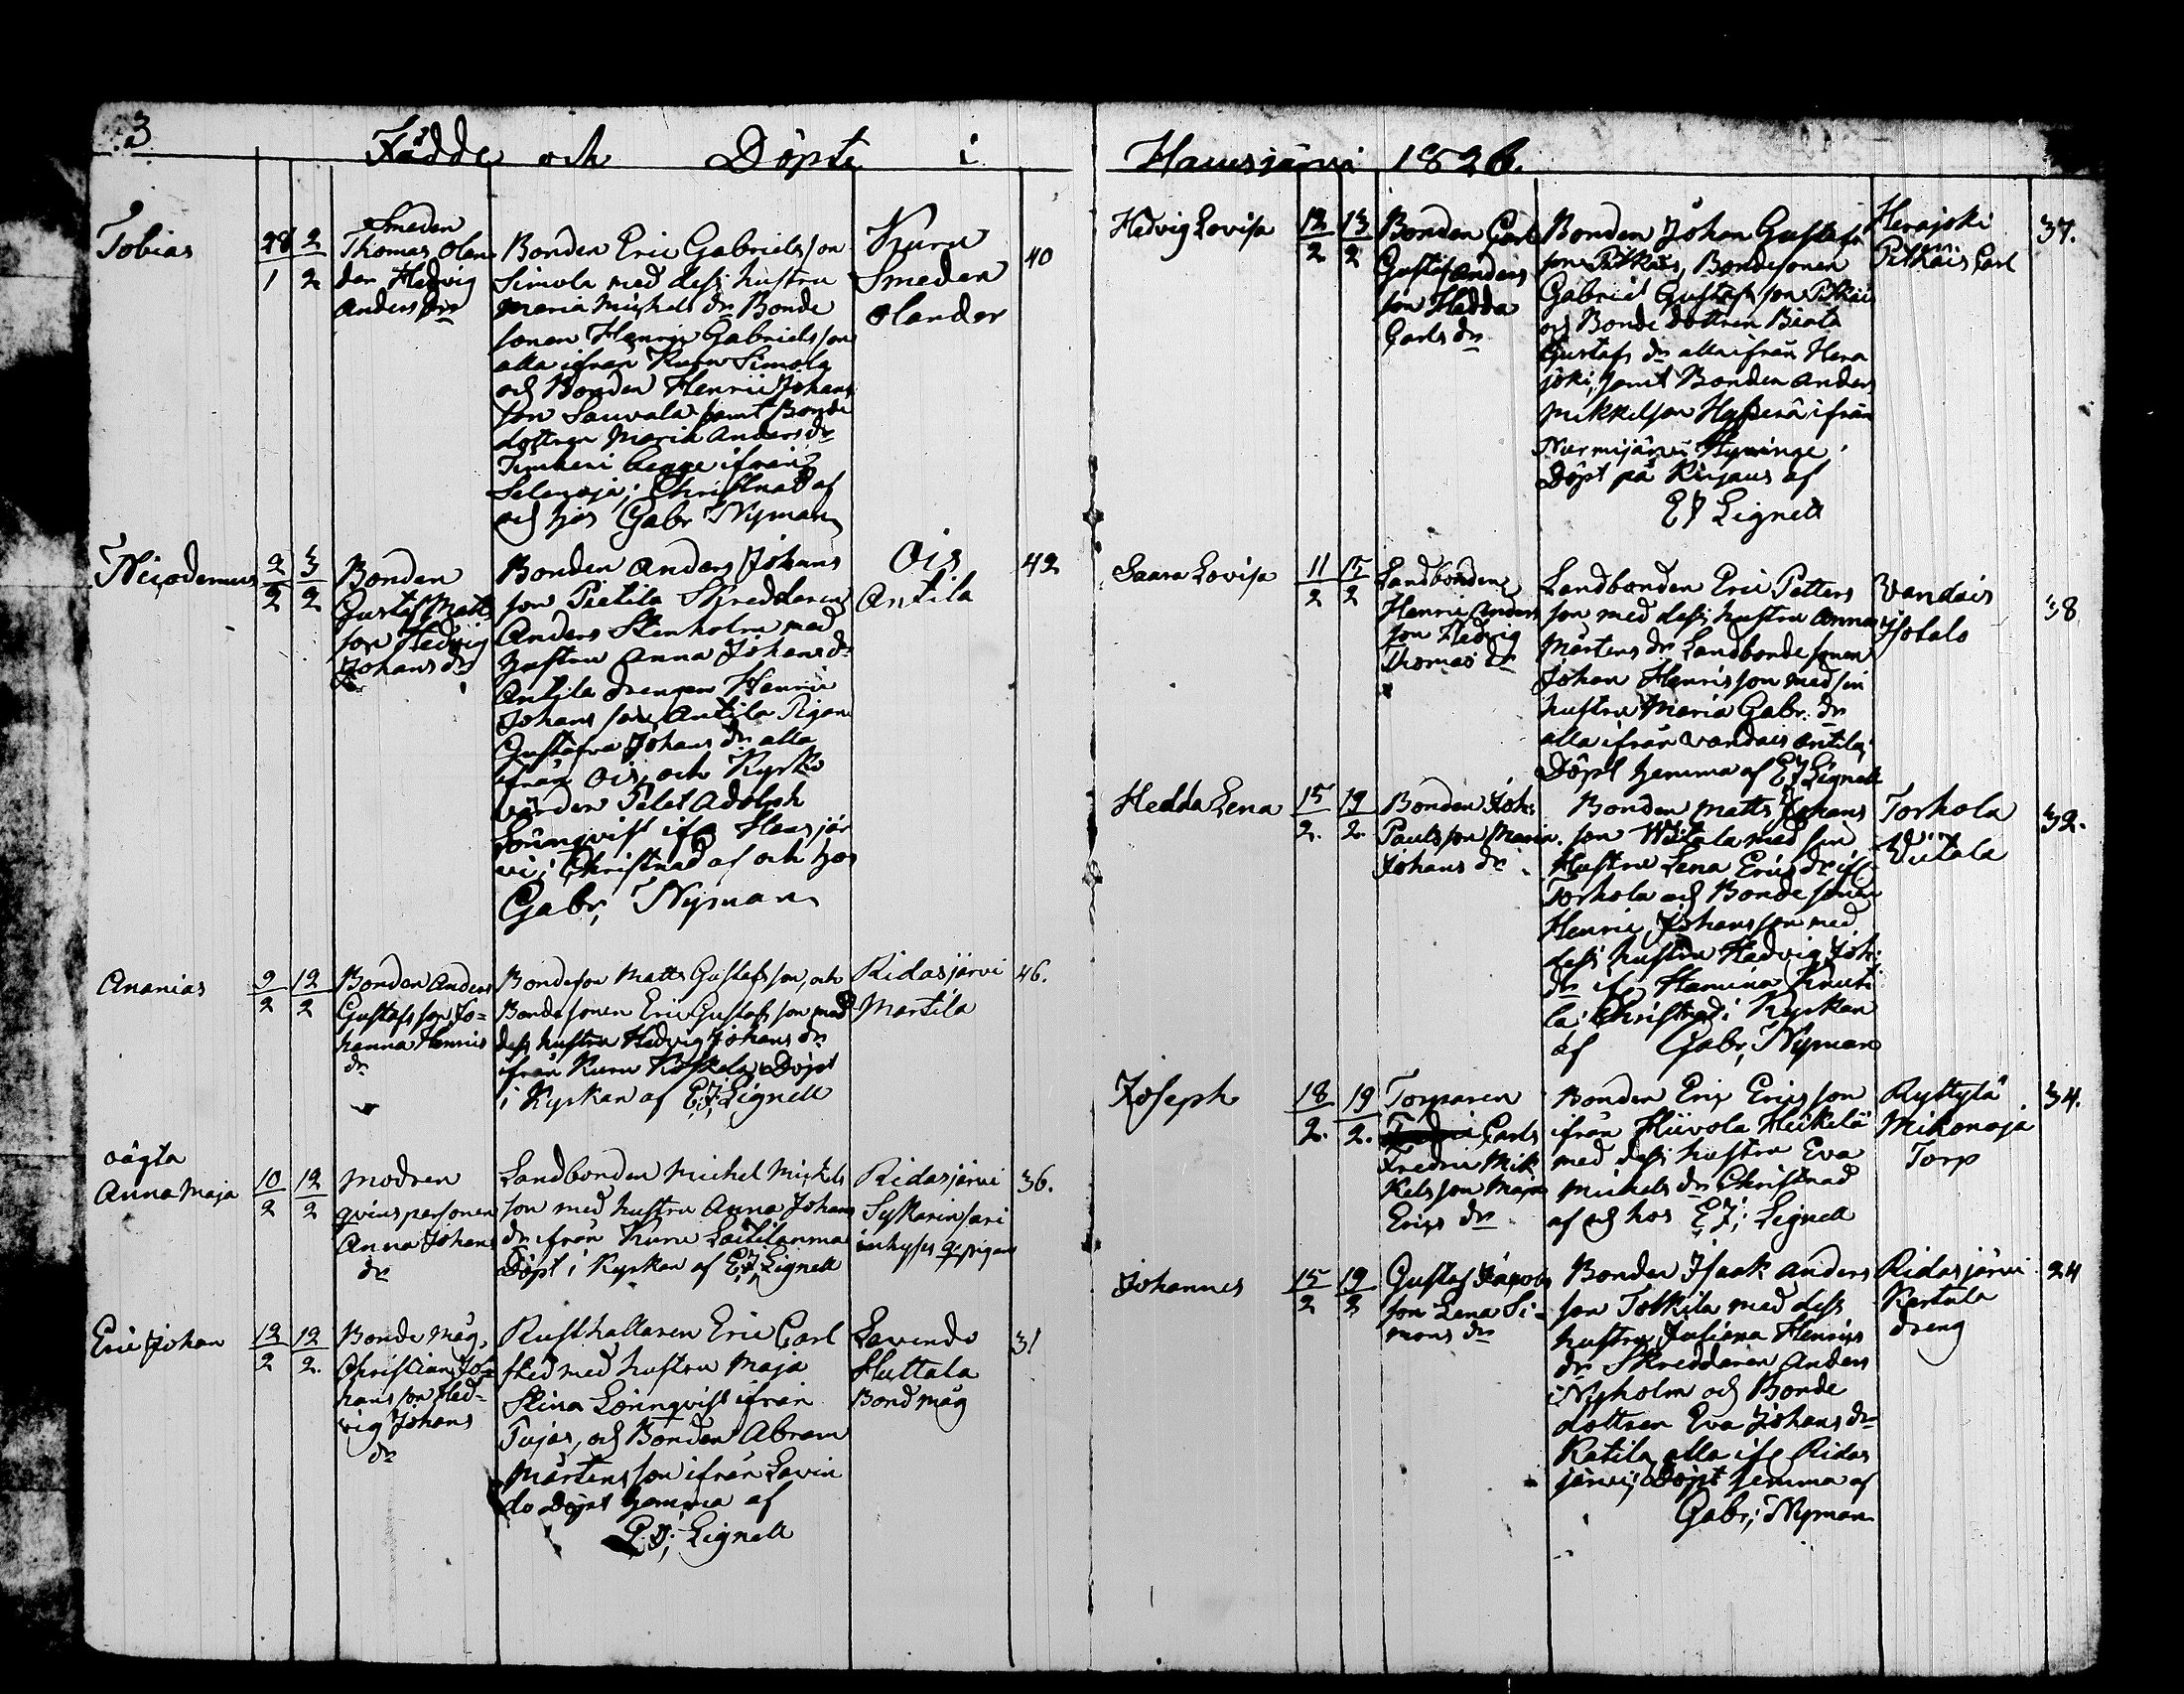 3
Födde och Döpte i
Tobias
28/1 2/2
Smeden
Thomas Olan
der Hedvig
Anders dr
Bonden Eric Gabriels son
Simola med dess hustru
Maria Michels dr Bonde
sonen Henric Gabriels son
alla ifrån Kuru Simola
och Bonden Henric Johans
son Sauvala samt Bonde
dottren Maria Anders dr
begge ifrån
Selenoja; Christnad af
och hos Gabr Nyman
Kuru
Smeden
Olander
40
Nicodemus
2/2 3/2
Bonden
Gustaf Matts
son Hedvig
Johans dr
Bonden Anders Johans
son Pietila Skreddaren
Anders Stenholm med
hustru Anna Johans dr
Antila drengen Henric
Johans son Antila Pigan
Gustafva Johans dr alla
ifrån Ois, och Kyrko
värden Adolph
Lönnqvist ifr Hausjär
vi; Christnad af och hos
Gabr, Nyman
Ois
Antila
42
Ananias
9/2 12/2
Bonden Anders
Gustafs son, Jo-
hanna Henrics
dr
Bondeson Matts Gustafs son, och
Bonde sonen Eric Gustafs son med
dess hustru Hedvig Johans dr
ifrån Kuru Döpt
i Kyrkan af E, J, Lignell
Ridasjärvi
Martila
46.
oägta
Anna Maja
10/2 12/2
Modren
qvins personen
Anna Johans
dr
Landbonden Michel Mickels
son med hustru Anna Johans
dr ifrån Kuru Laitilanma
Döpt i Kyrkan af E, J, Lignell
Ridasjärvi
Sykärinsari
inhyses
36.
Eric Johan
12/2 12/2.
Bonde måg,
Christian Jo-
hans son Hed-
vig Johans
dr
Rusthållaren Eric Carl
sted med hustru Maja
Stina Lönnqvist ifrån
Pujas, och Bonden Abram
Mårtens son ifrån Lavin
do Döpt hemma af
E. J; Lignell
Lavindo
Huttala
Bond måg
31
Hausjärvi 1826.
Hedvig Lovisa
12/2 13/2
Bonden Carl
Gustaf Anders
son Hedda
Carls dr
Bonden Johan Gustafs
son Pitkäis, Bondesonen
Gabriel Gustafs son Pitkäis
och Bonde dottren Beata
Gustafs dr alla ifrån Hera
joki, samt Bonden Anders
Mikkelson ifrån
Nurmijärvi Hyvinge.
Döpt på af
E J Lignell
Herajoki
Pitkäis Carl
37.
Saara Lovisa
11/2 15/2
Landbonden
Henric Anders
son Hedvig
Thomas dr
Landbonden Eric Petters
son med dess hustru Anna
Mårtens dr Landbondesonen
Johan Henrics son med sin
hustru Maria Gabr. dr
alla ifrån Vandais Antila;
Döpt hemma af E, J Lignell
Vandais
Isotalo
38
Hedda Lena
15/2. 19/2.
Bonden Joh:
Pauls son Maria
Johans dr
Bonden Matts Johans
son Wiitala med sin
Hustru Lena Erics dr if
Torhola och Bonde sonen
Henric Johans son med
dess hustru Hedvig Joh:
dr if Hamina Knuti
la; Christnad i Kyrkan
af Gabr, Nyman
Torhola
Wiitala
32.
Joseph
18/2. 19/2.
Torparen
Carls
Fredric Mik
kels son Maja
Erics dr
Bonden Eric Erics son
ifrån Hiivola Heikelä
med dess hustru Eva
Michels dr Christnad
af och hos E, J; Lignell
Ryttylä
Mikonoja
Torp
34.
Johannes
15/2 19/2
Gustaf Jacobs
son Lena Si-
mons dr
Bonden Isaak Anders
son Tolkila med dess
hustru Juliana Henrics
dr Skreddaren Anders
Nyholm och Bonde
dottren Eva Johans dr
Katila alla ifr Ridas
järvi; Döpt hemma af
Gabr; Nyman
Ridasjärvi
Kartula
dreng
24